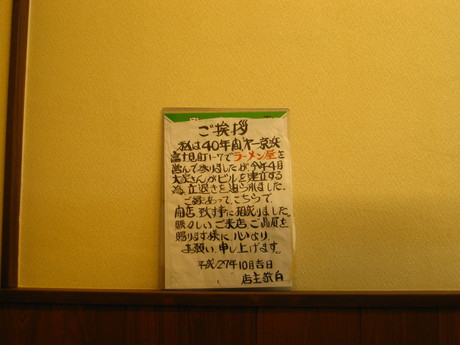 ご挨拶
私は40年間
富士見町1-7でラーメン屋を
営んで参りましたが、今年4月
大家さんがビルを建立する
為、立退きを迫られました。
ご縁あって、こちらで
開店致す事に相成りました。
賑々しいご来店、ご高庇を
賜ります様に心より
お願い申し上げます。
平成27年10月吉日
店主敬白